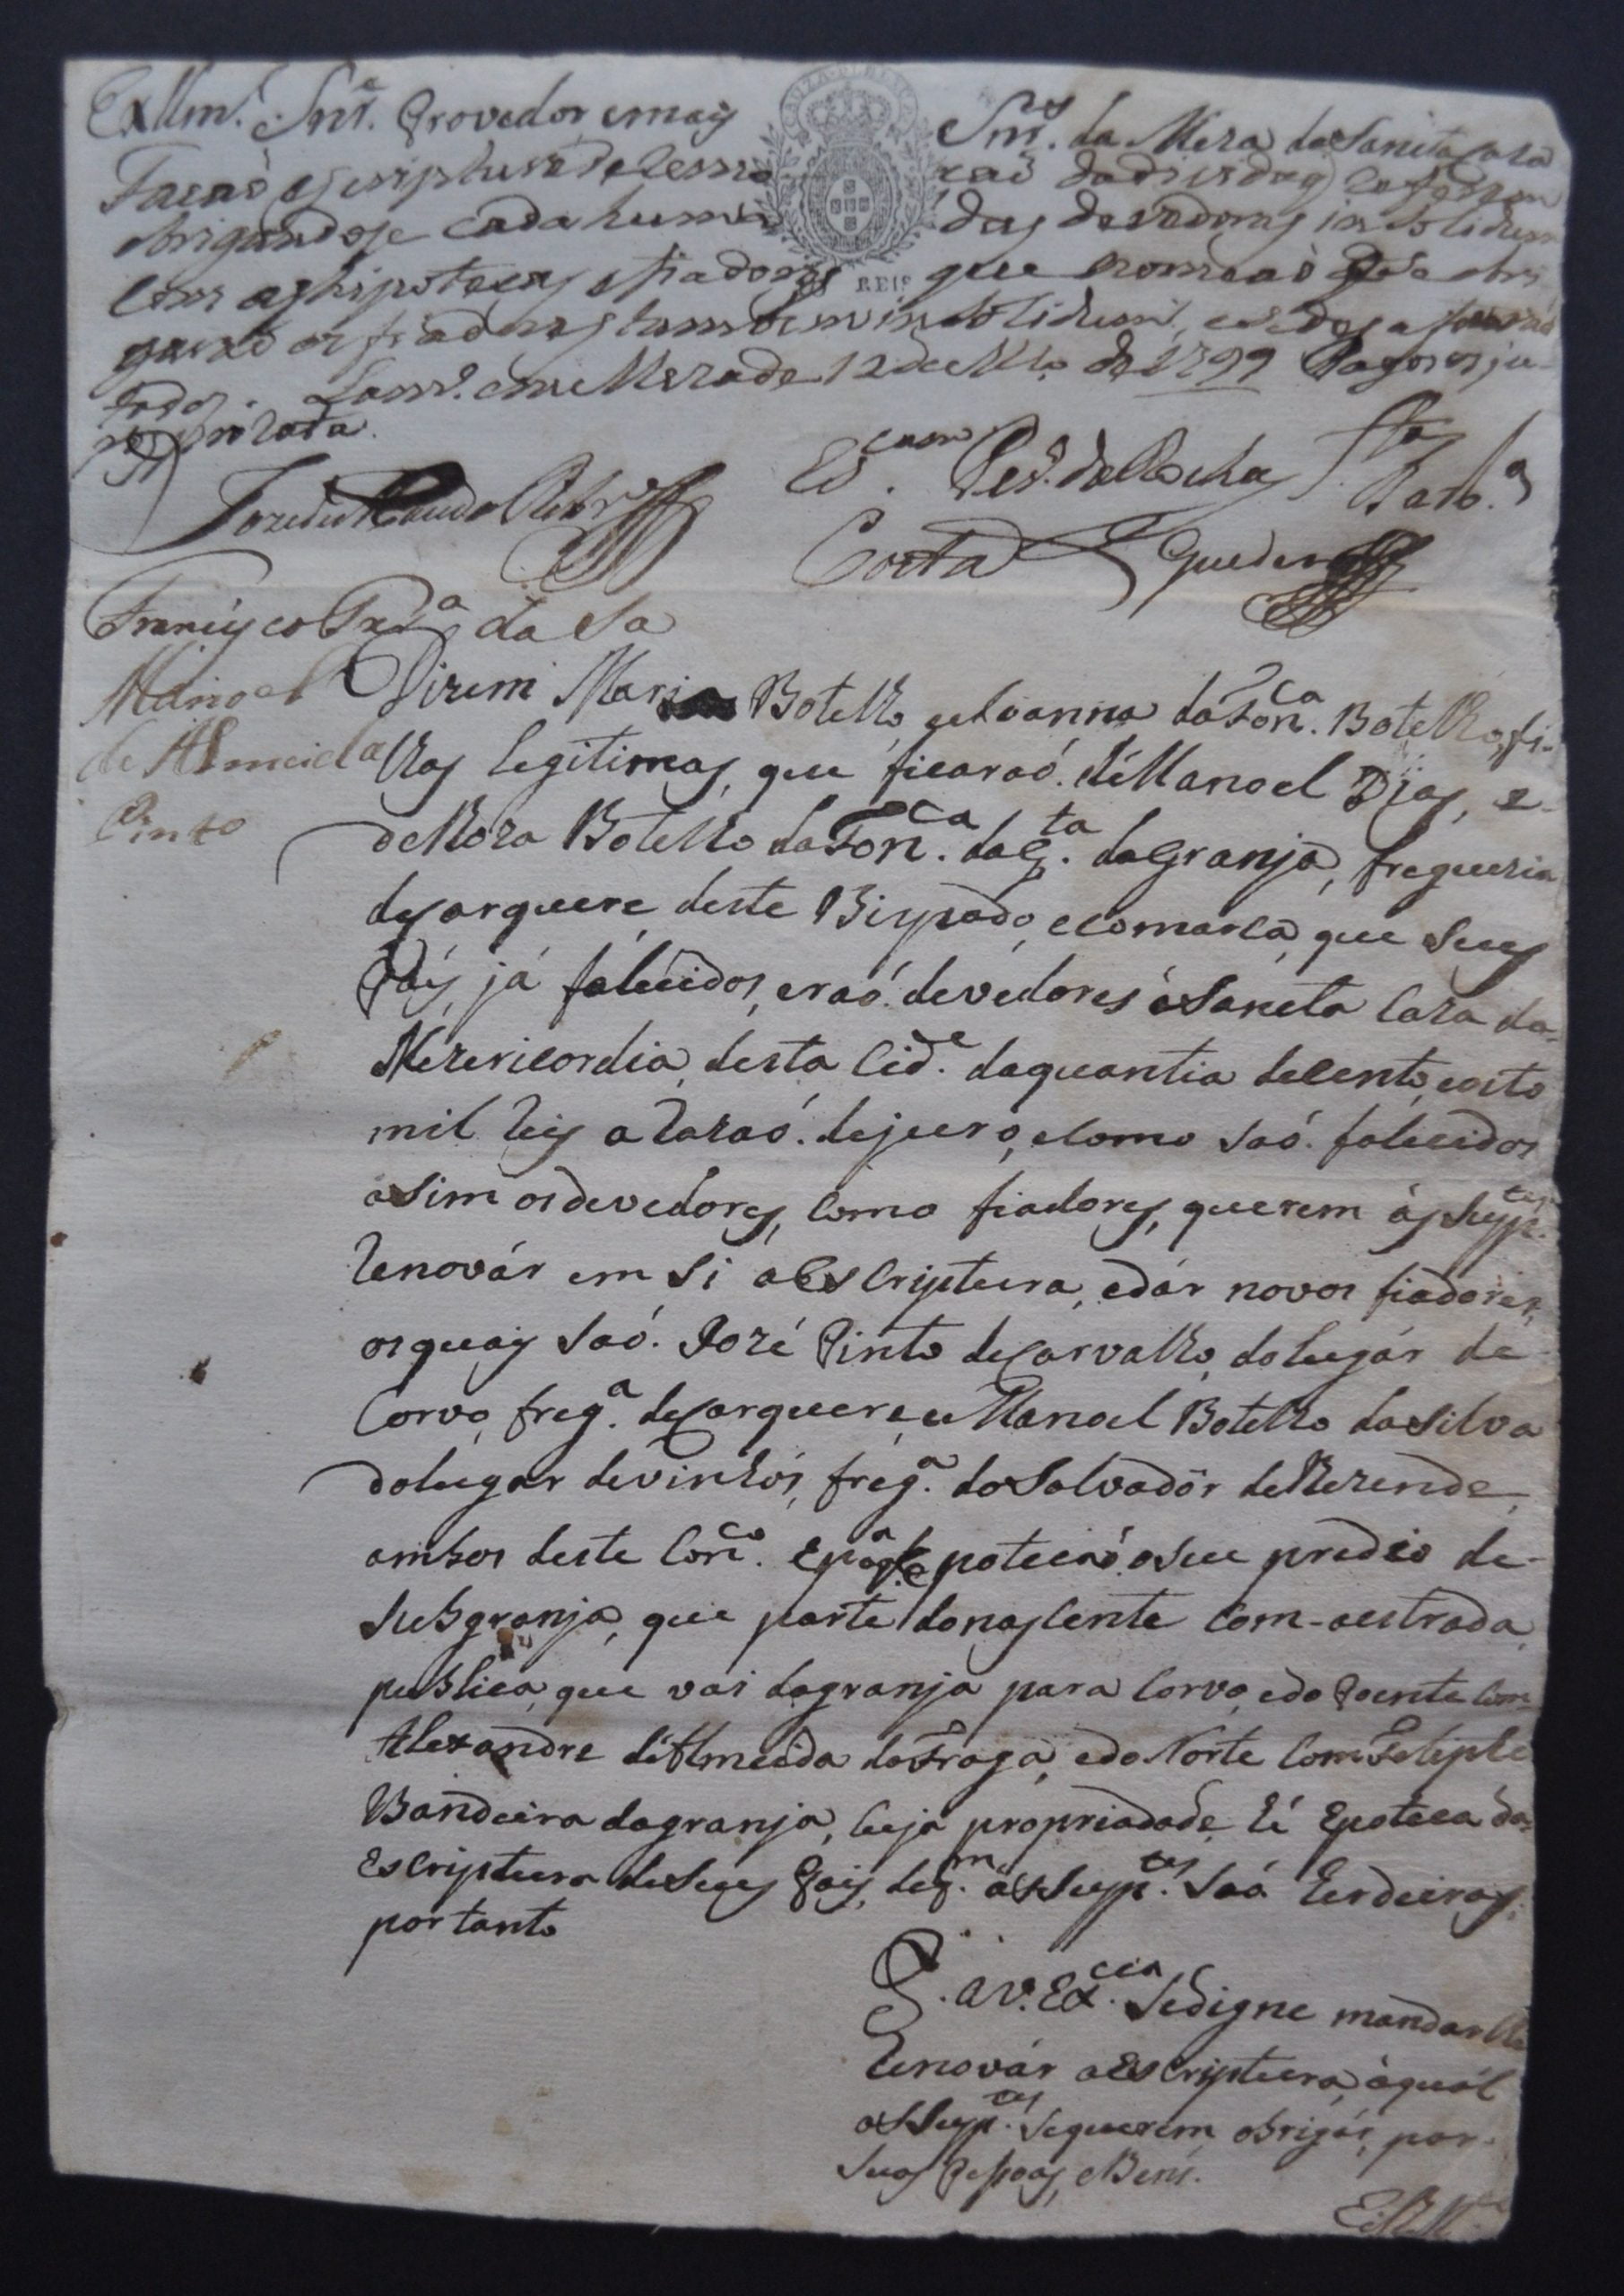 Exllm.º Snr.ᵉ Provedor e mais Snr.ᵉˢ da Meza da Sancta Caza
Facaõ escriptura de cessaõ
obrigandose cada huma das devedoras in solidum
com as hipotecas e fiadores que
os fiadores tambem in solidum,
todos. Lam.º em Meza de 12 de de 1799 Pagos os ju-
ros
CAUZA PUBLICA
REIS
Ped. da Rocha
Costa Guedes
Francisco da Sa
Manoel
de Almeida
Pinto
Dizem Maria Botelho, e Joanna da Fon.ᶜᵃ Botelho, fi-
lhas legitimas, que ficaraó. de Manoel Dias, e
de Roza Botelho da Fon.ᶜᵃ da q.ᵗᵃ da Granja, freguezia
de Carquere, deste Bispado, e comarca, que seus
Páis, já falecidos, eraó. devedores á Sancta Caza da
Mezericordia, desta Cid.ᵉ da quantia de cento, e oito
mil reis a razaó. de juro, e como saó. falecidos
asim os devedores, como fiadores, querem ás Supp.ᵗᵉˢ
renovár em si a Escriptura, e dár novos fiadores,
os quais saó. Jozé Pinto de Carvalho, do lugár de
Corvo, freg.ᵃ de Carquere, e Manoel Botelho da Silva
do lugar de vinhós, freg.ᵃ do Salvadór de Rezende,
ambos deste Con.ᶜᵒ. e p.ᵃ potecaó. o seu predio de
Subgranja, que parte do nascente com a estrada
publica, que vai da granja para Corvo, e do Poente com
Alexandre de Almeida da Fraga, e do Norte com Feliphe
Bandeira da granja, cuja propriadade hé Epoteca da
Escriptura de seus Pais, de q.ᵐ as Supp.ᵗᵉˢ saó herdeiras;
por tanto
P. a V. Ex.ᶜⁱᵃ Se digne mandar lhe
renovár a Escriptura, á quál
as Supp.ᵗᵉˢ se querem obrigár, por
suas Pessoas, e Bens.
E. R. M.ᶜᵉ